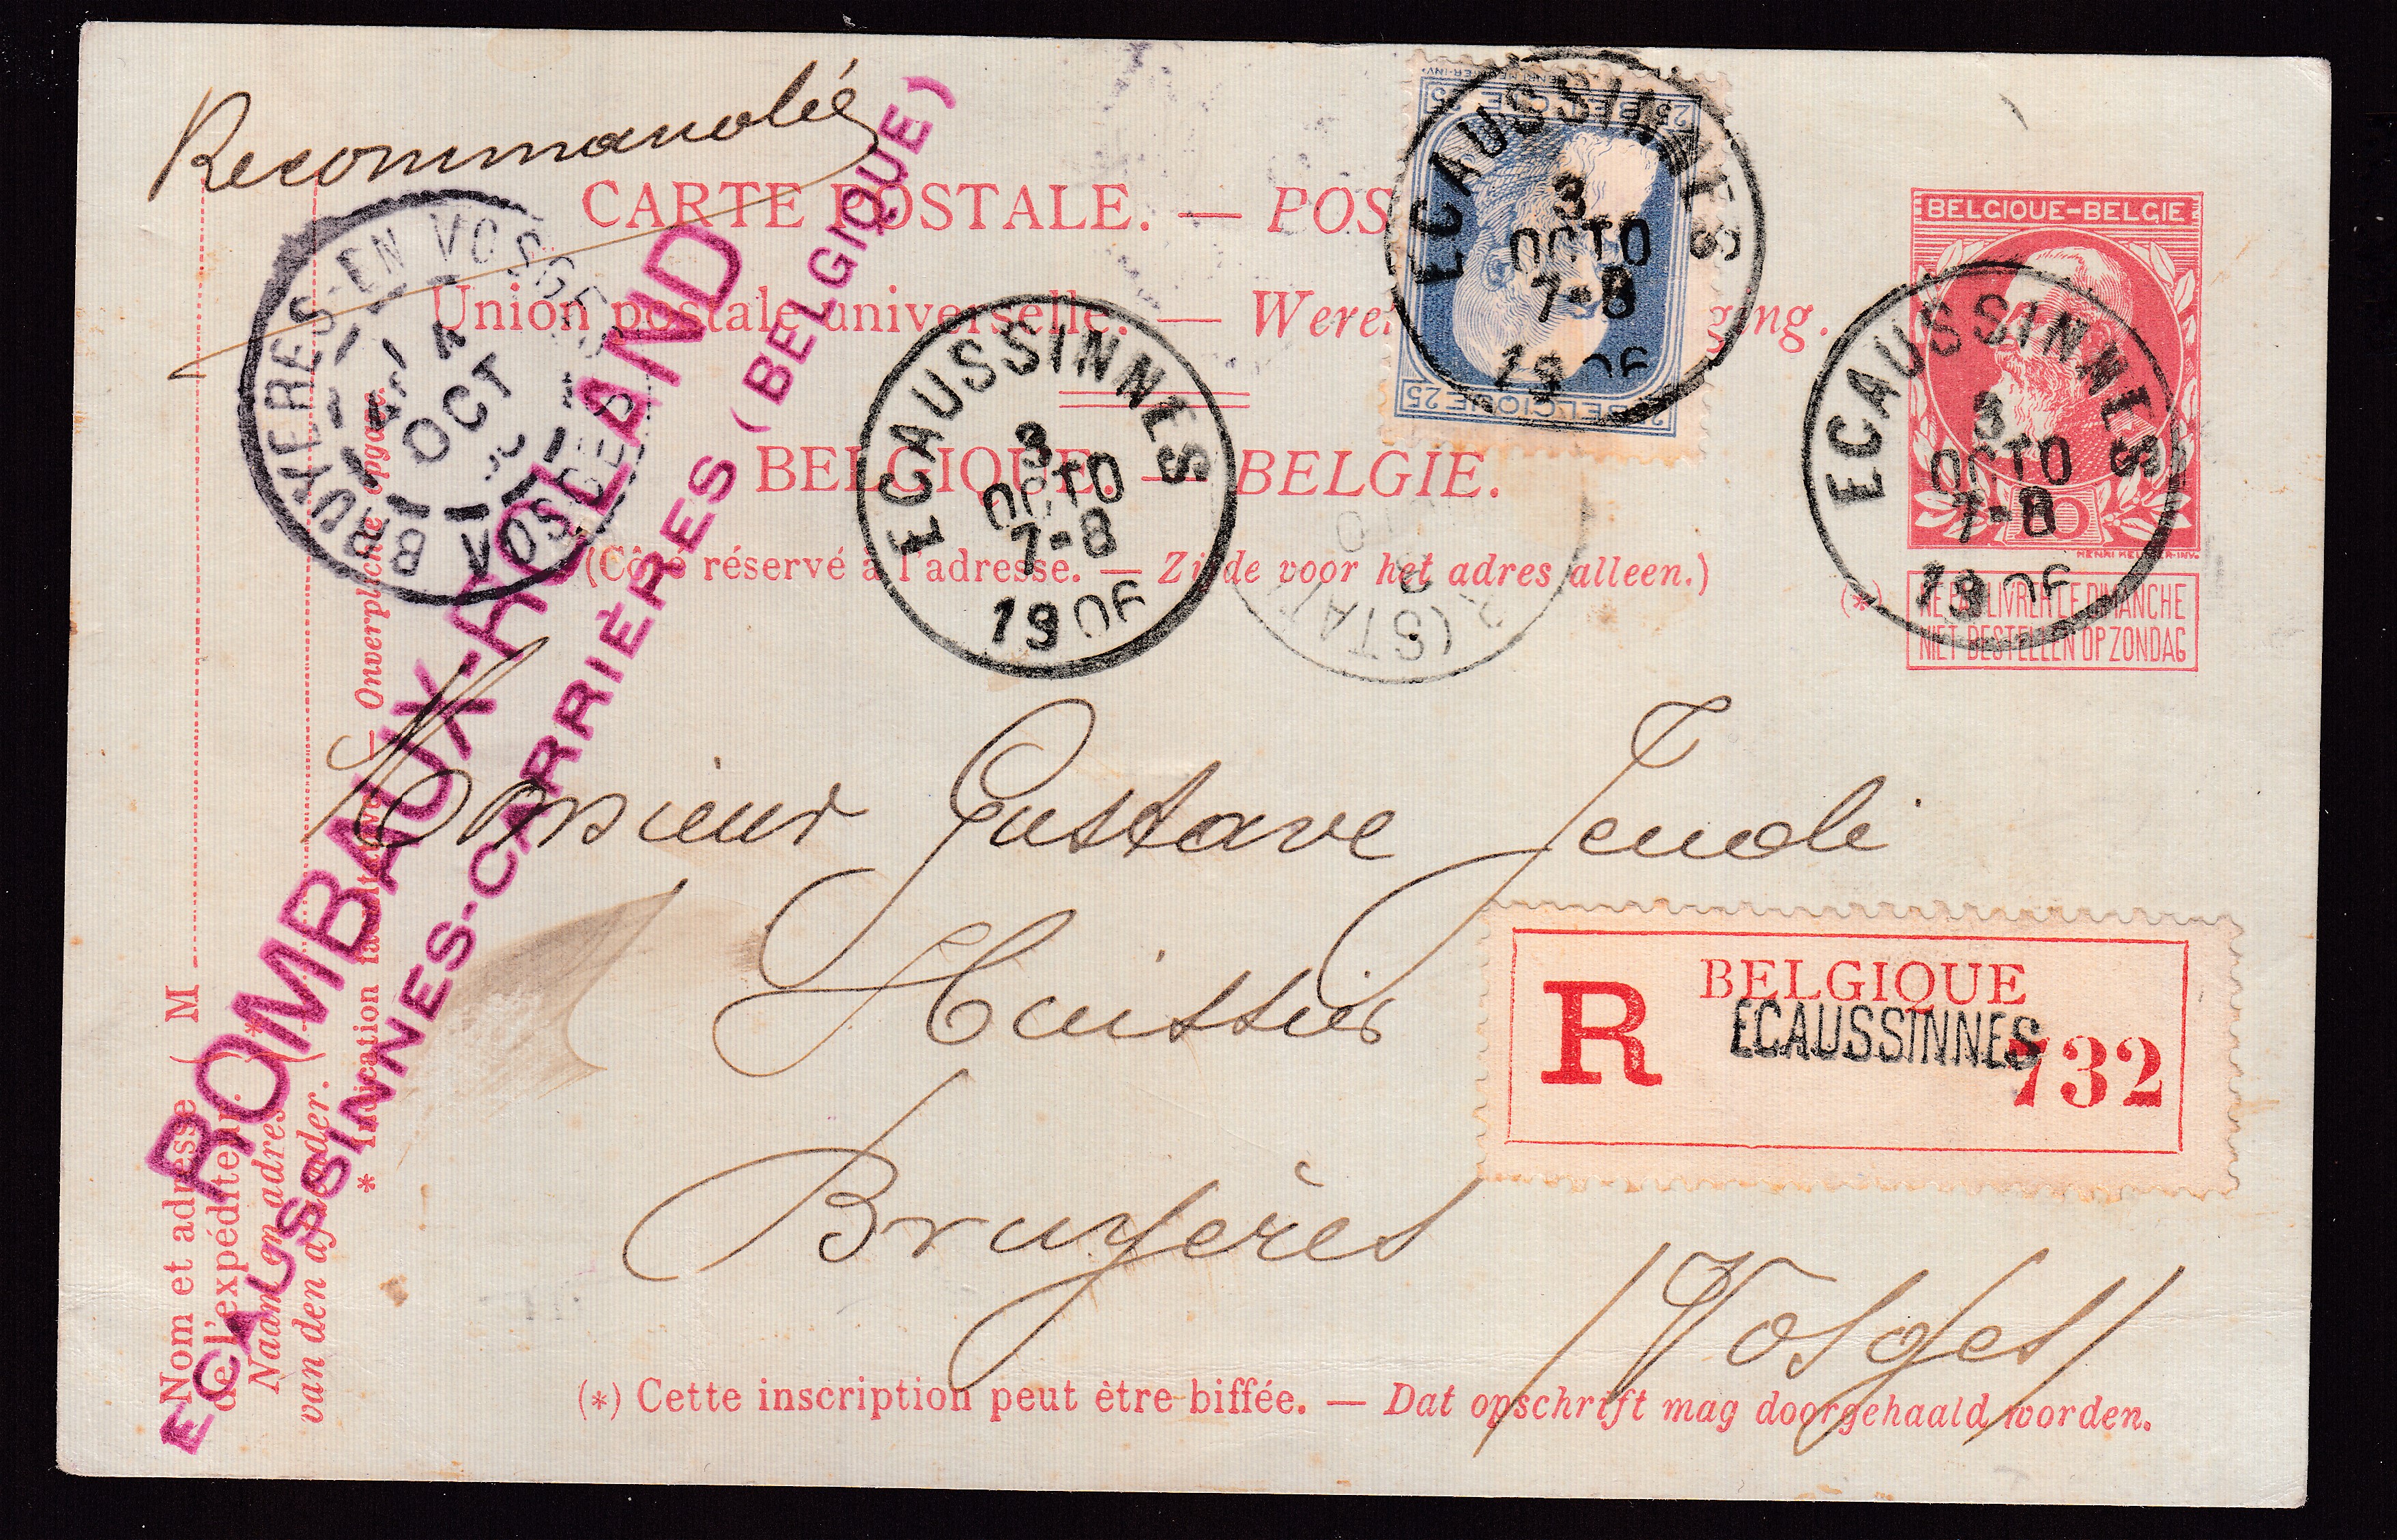 Recommandée
CARTE POSTALE. — POS
Union postale universelle. — Were ging.
BELGIQUE. — BELGIE.
(Côté réservé à l'adresse. — Zijde voor het adres alleen.)
BELGIQUE 25
HENRI MEUNIER-INV.
25 BELGIQUE 25
ECAUSSINNES
3
OCTO
7-8
1906
BELGIQUE-BELGIE
10
HENRI MEUNIER-INV.
ECAUSSINNES
3
OCTO
7-8
1906
(*) NE PAS LIVRER LE DIMANCHE
NIET BESTELLEN OP ZONDAG
ECAUSSINNES
3
OCTO
7-8
1906
BRUYERES-EN VOSGES
OCT
VOSGES
(STAT
ROMBAUX-ROLAND
ECAUSSINNES-CARRIÈRES (BELGIQUE)
Monsieur Gustave
Huissier
Bruyères
(Vosges)
BELGIQUE
R ECAUSSINNES
732
Nom et adresse ( M
de l'expéditeur.
Naam en adres (*
van den afzender.
* Indication facultative. — Onverplichte opgave.
(*) Cette inscription peut être biffée. — Dat opschrift mag doorgehaald worden.